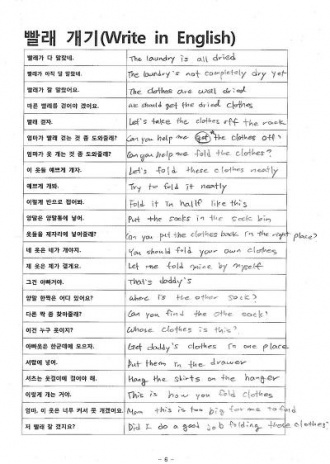 빨래 개기(Write in English)
빨래가 다 말랐네. The laundry is all dried
빨래가 아직 덜 말랐네. The laundry's not completely dry yet
빨래가 잘 말랐어요. The clothes are well dried
마른 빨래를 걷어야 겠어요. We should get the dried clothes
빨래 걷자. Let's take the clothes off the rack
엄마가 빨래 걷는 것 좀 도와줄래? Can you help me get the clothes off?
엄마가 옷 개는 것 좀 도와줄래? Can you help me fold the clothes?
이 옷들 예쁘게 개자. Let's fold these clothes neatly
예쁘게 개봐. Try to fold it neatly
이렇게 반으로 접어봐. Fold it in half like this
양말은 양말통에 넣어. Put the socks in the sock bin
옷들을 제자리에 넣어줄래? Can you put the clothes back in the right place?
네 옷은 네가 개야지. You should fold your own clothes
제 옷은 제가 갤게요. Let me fold mine by myself
그건 아빠거야. That's daddy's
양말 한짝은 어디 있어요? Where is the other sock?
다른 짝 좀 찾아줄래? Can you find the othe sock?
이건 누구 옷이지? Whose clothes is this?
아빠옷은 한군데에 모으자. Get daddy's clothes in one place
서랍에 넣어. Put them in the drawer
셔츠는 옷걸이에 걸어야 해. Hang the shirts on the hanger
이렇게 개는 거야. This is how you fold clothes
엄마, 이 옷은 너무 커서 못 개겠어요. Mom this is too big for me to fold
저 빨래 잘 갰지요? Did I do a good job folding these clothes?
- 6 -